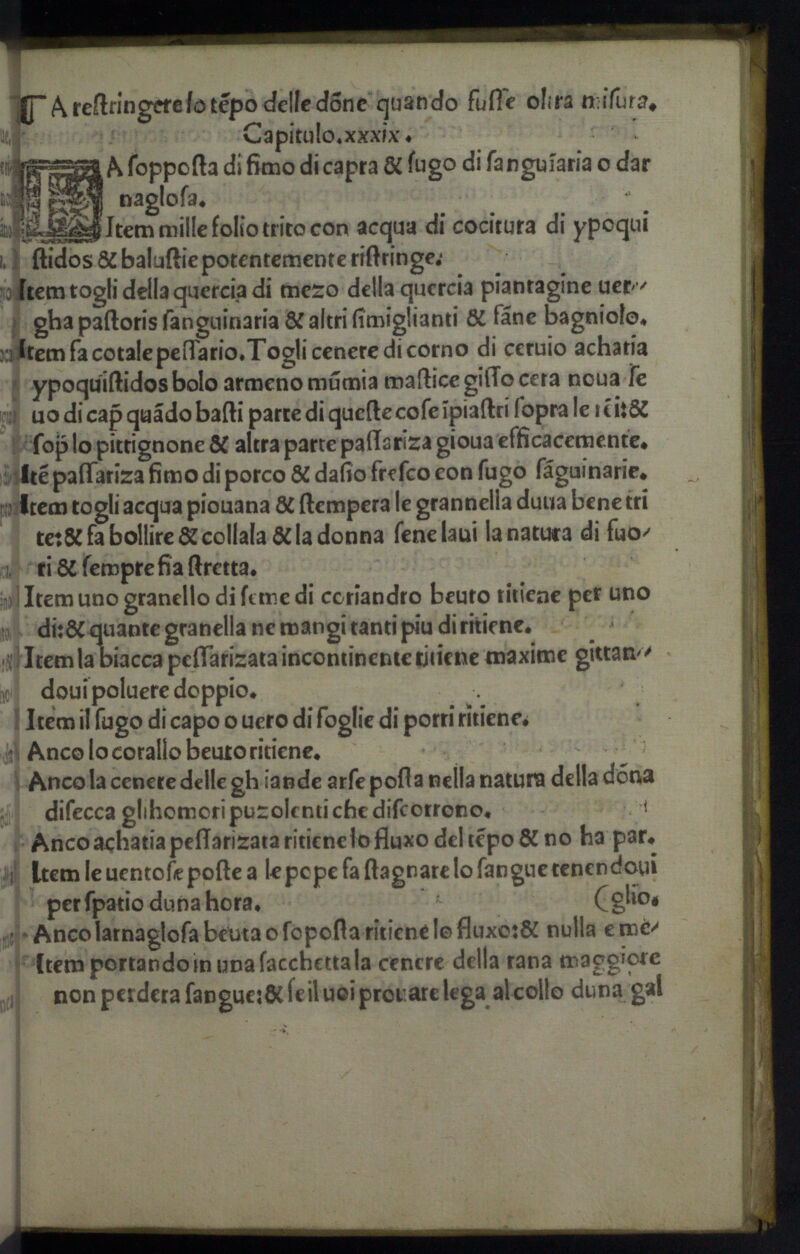 ❡ A reſtringere lo tẽpo delle dõne quando fuſſe oltra miſura.
Capitulo.xxxix.
A ſoppoſta di fimo di capra & ſugo di ſanguiaria o dar
nagloſa.
Item mille folio trito con acqua di cocitura di ypoqui
ſtidos & baluſtie potentemente riſtringe.
Item togli della quercia di mezo della quercia piantagine uer⸗
gha paſtoris ſanguinaria & altri ſimiglianti & fãne bagniolo.
Item fa cotale peſſario. Togli cenere di corno di ceruio achatia
ypoquiſtidos bolo armeno mũmia maſtice giſſo cera noua ſe
uo di cap̄ quãdo baſti parte di queſte coſe ĩpiaſtri ſopra le &
ſop̄ lo pittignone & altra parte paſſariza gioua efficacemente.
Itẽ paſſariza fimo di porco & daſio freſco con ſugo ſãguinarie.
Item togli acqua piouana & ſtempera le grannella duua bene tri
te: & fa bollire & collala & la donna ſene laui la natura di fuo⸗
ri & ſempre ſia ſtretta.
Item uno granello di ſeme di coriandro beuto ritiene per uno
di: & quante granella ne mangi tanti piu di ritiene.
Item la biacca peſſarizata incontinente ritiene maxime gittan⸗
doui poluere doppio.
Item il ſugo di capo o uero di foglie di porri ritiene.
Anco lo corallo beuto ritiene.
Anco la cenere delle ghiande arſe poſta nella natura della dõna
diſecca glihomori puzolenti che diſcorrono.
Anco achatia peſſarizata ritiene lo fluxo del tẽpo & no ha par.
Item le uentoſe poſte a le pope fa ſtagnare lo ſangue tenendoui
per ſpatio duna hora. (glio.
Anco larnagloſa beuta o ſopoſta ritiene lo fluxo: & nulla e me⸗
Item portando in una ſacchetta la cenere della rana maggiore
non perdera ſangue: & ſe il uoi prouare lega al collo duna gal